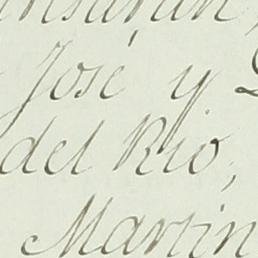 José y
del Rio,
Martin